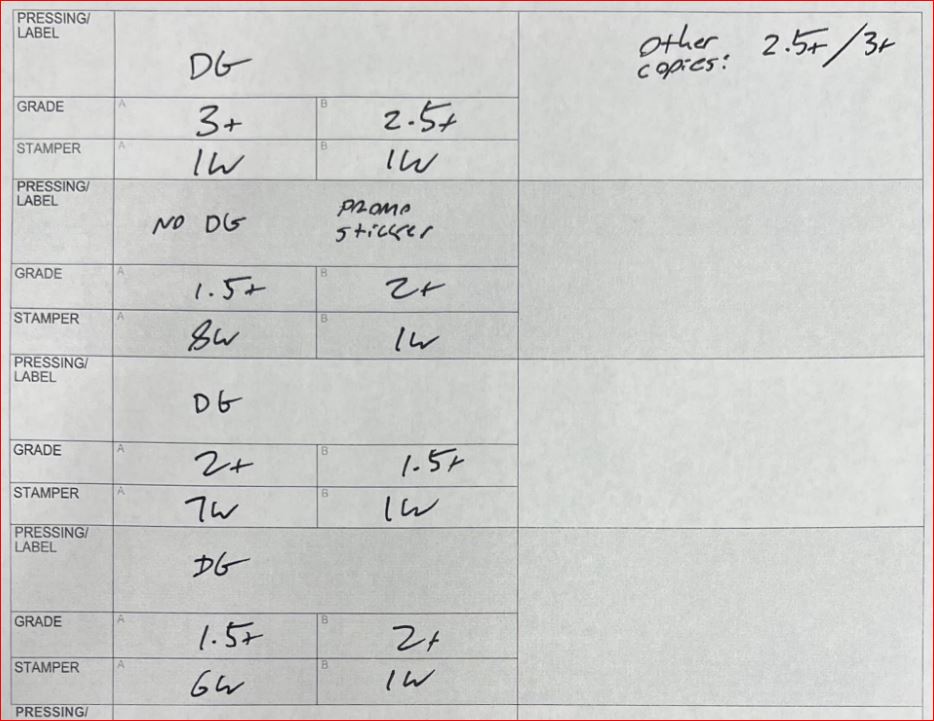 PRESSING/
LABEL
DG
Other
copies: 2.5+/3+
GRADE A 3+ B 2.5+
STAMPER A 1W B 1W
PRESSING/
LABEL
NO DG
PROMO
sticker
GRADE A 1.5+ B 2+
STAMPER A 8W B 1W
PRESSING/
LABEL
DG
GRADE A 2+ B 1.5+
STAMPER A 7W B 1W
PRESSING/
LABEL
DG
GRADE A 1.5+ B 2+
STAMPER A 6W B 1W
PRESSING/